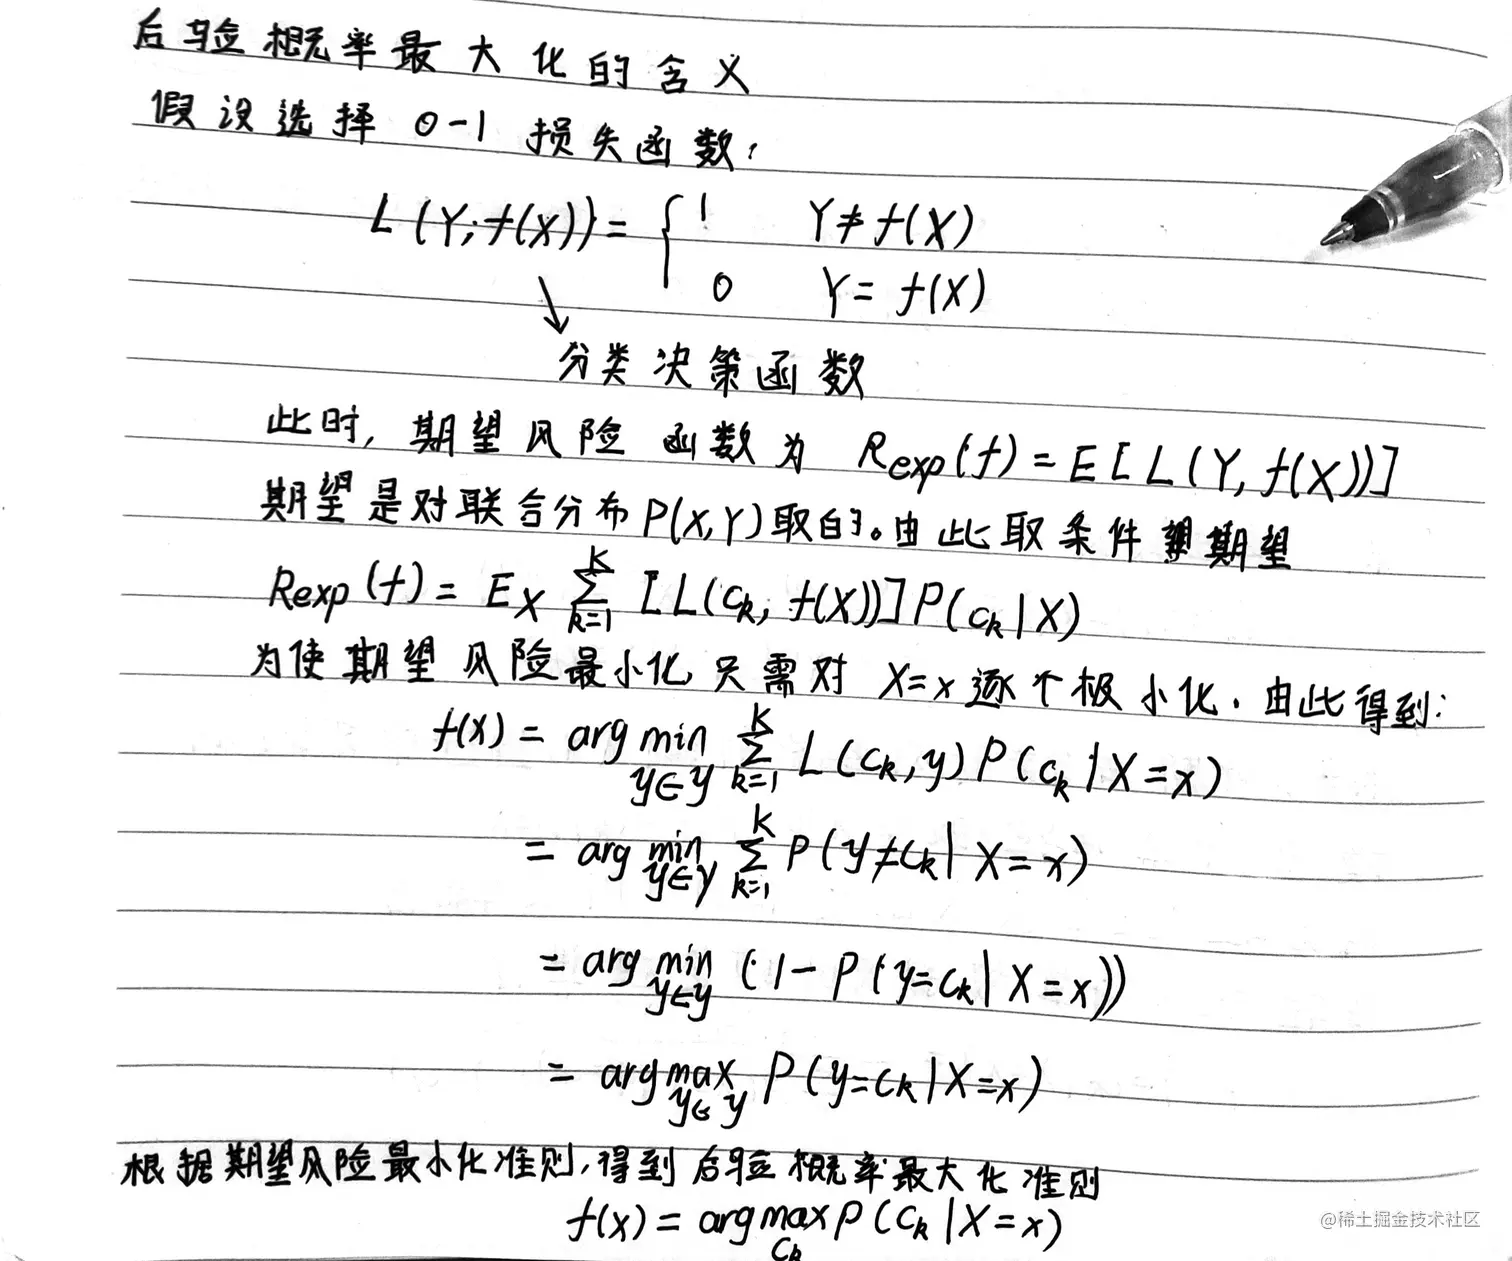 后验概率最大化的含义
假设选择 0-1 损失函数,
L(Y, f(X)) = { 1 Y≠f(X)
0 Y=f(X)
↘
分类决策函数
此时, 期望风险函数为 Rexp(f) = E[L(Y, f(X))]
期望是对联合分布P(X,Y)取的。由此取条件期望
Rexp(f) = E_X ∑_{k=1}^{K} [L(c_k, f(X))]P(c_k|X)
为使期望风险最小化, 只需对 X=x逐个极小化. 由此得到:
f(x) = arg min_{y∈y} ∑_{k=1}^{K} L(c_k, y)P(c_k|X=x)
= arg min_{y∈y} ∑_{k=1}^{K} P(y≠c_k|X=x)
= arg min_{y∈y} (1-P(y=c_k|X=x))
= arg max_{y∈y} P(y=c_k|X=x)
根据期望风险最小化准则, 得到后验概率最大化准则
f(x) = arg max_{c_k} P(c_k|X=x)
@稀土掘金技术社区